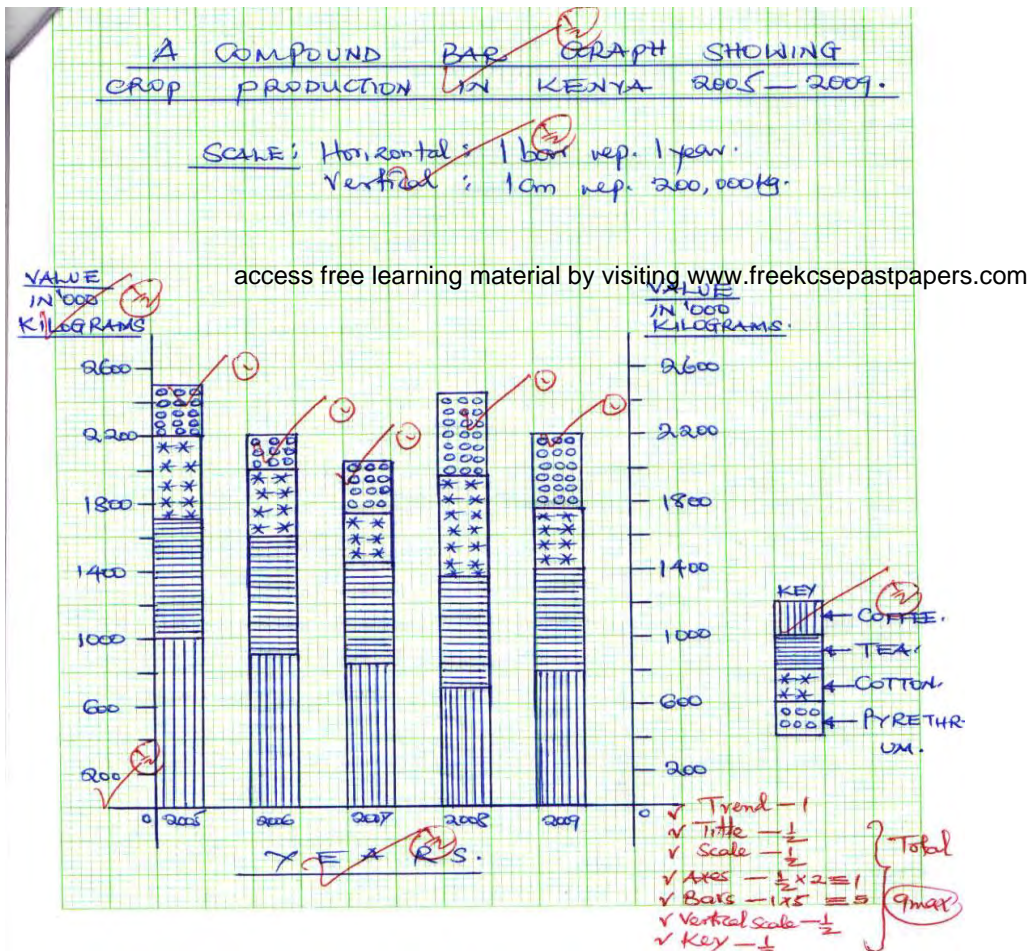 A COMPOUND BAR GRAPH SHOWING
CROP PRODUCTION IN KENYA 2005 — 2009.
SCALE: Horizontal: 1 bar rep. 1 year.
Vertical : 1cm rep. 200,000kg.
access free learning material by visiting www.freekcsepastpapers.com
VALUE
IN '000
KILOGRAMS
2600
2200
1800
1400
1000
600
200
0
VALUE
IN '000
KILOGRAMS.
2600
2200
1800
1400
1000
600
200
0
2005 2006 2007 2008 2009
YEARS.
KEY
COFFEE.
TEA.
COTTON.
PYRETHR-
UM.
½
½
½
½
½
½
✓ Trend — 1
✓ Title — ½
✓ Scale — ½
✓ Axes — ½ × 2 = 1
✓ Bars — 1x5 = 5
✓ Vertical scale — ½
✓ Key — ½
Total
9max